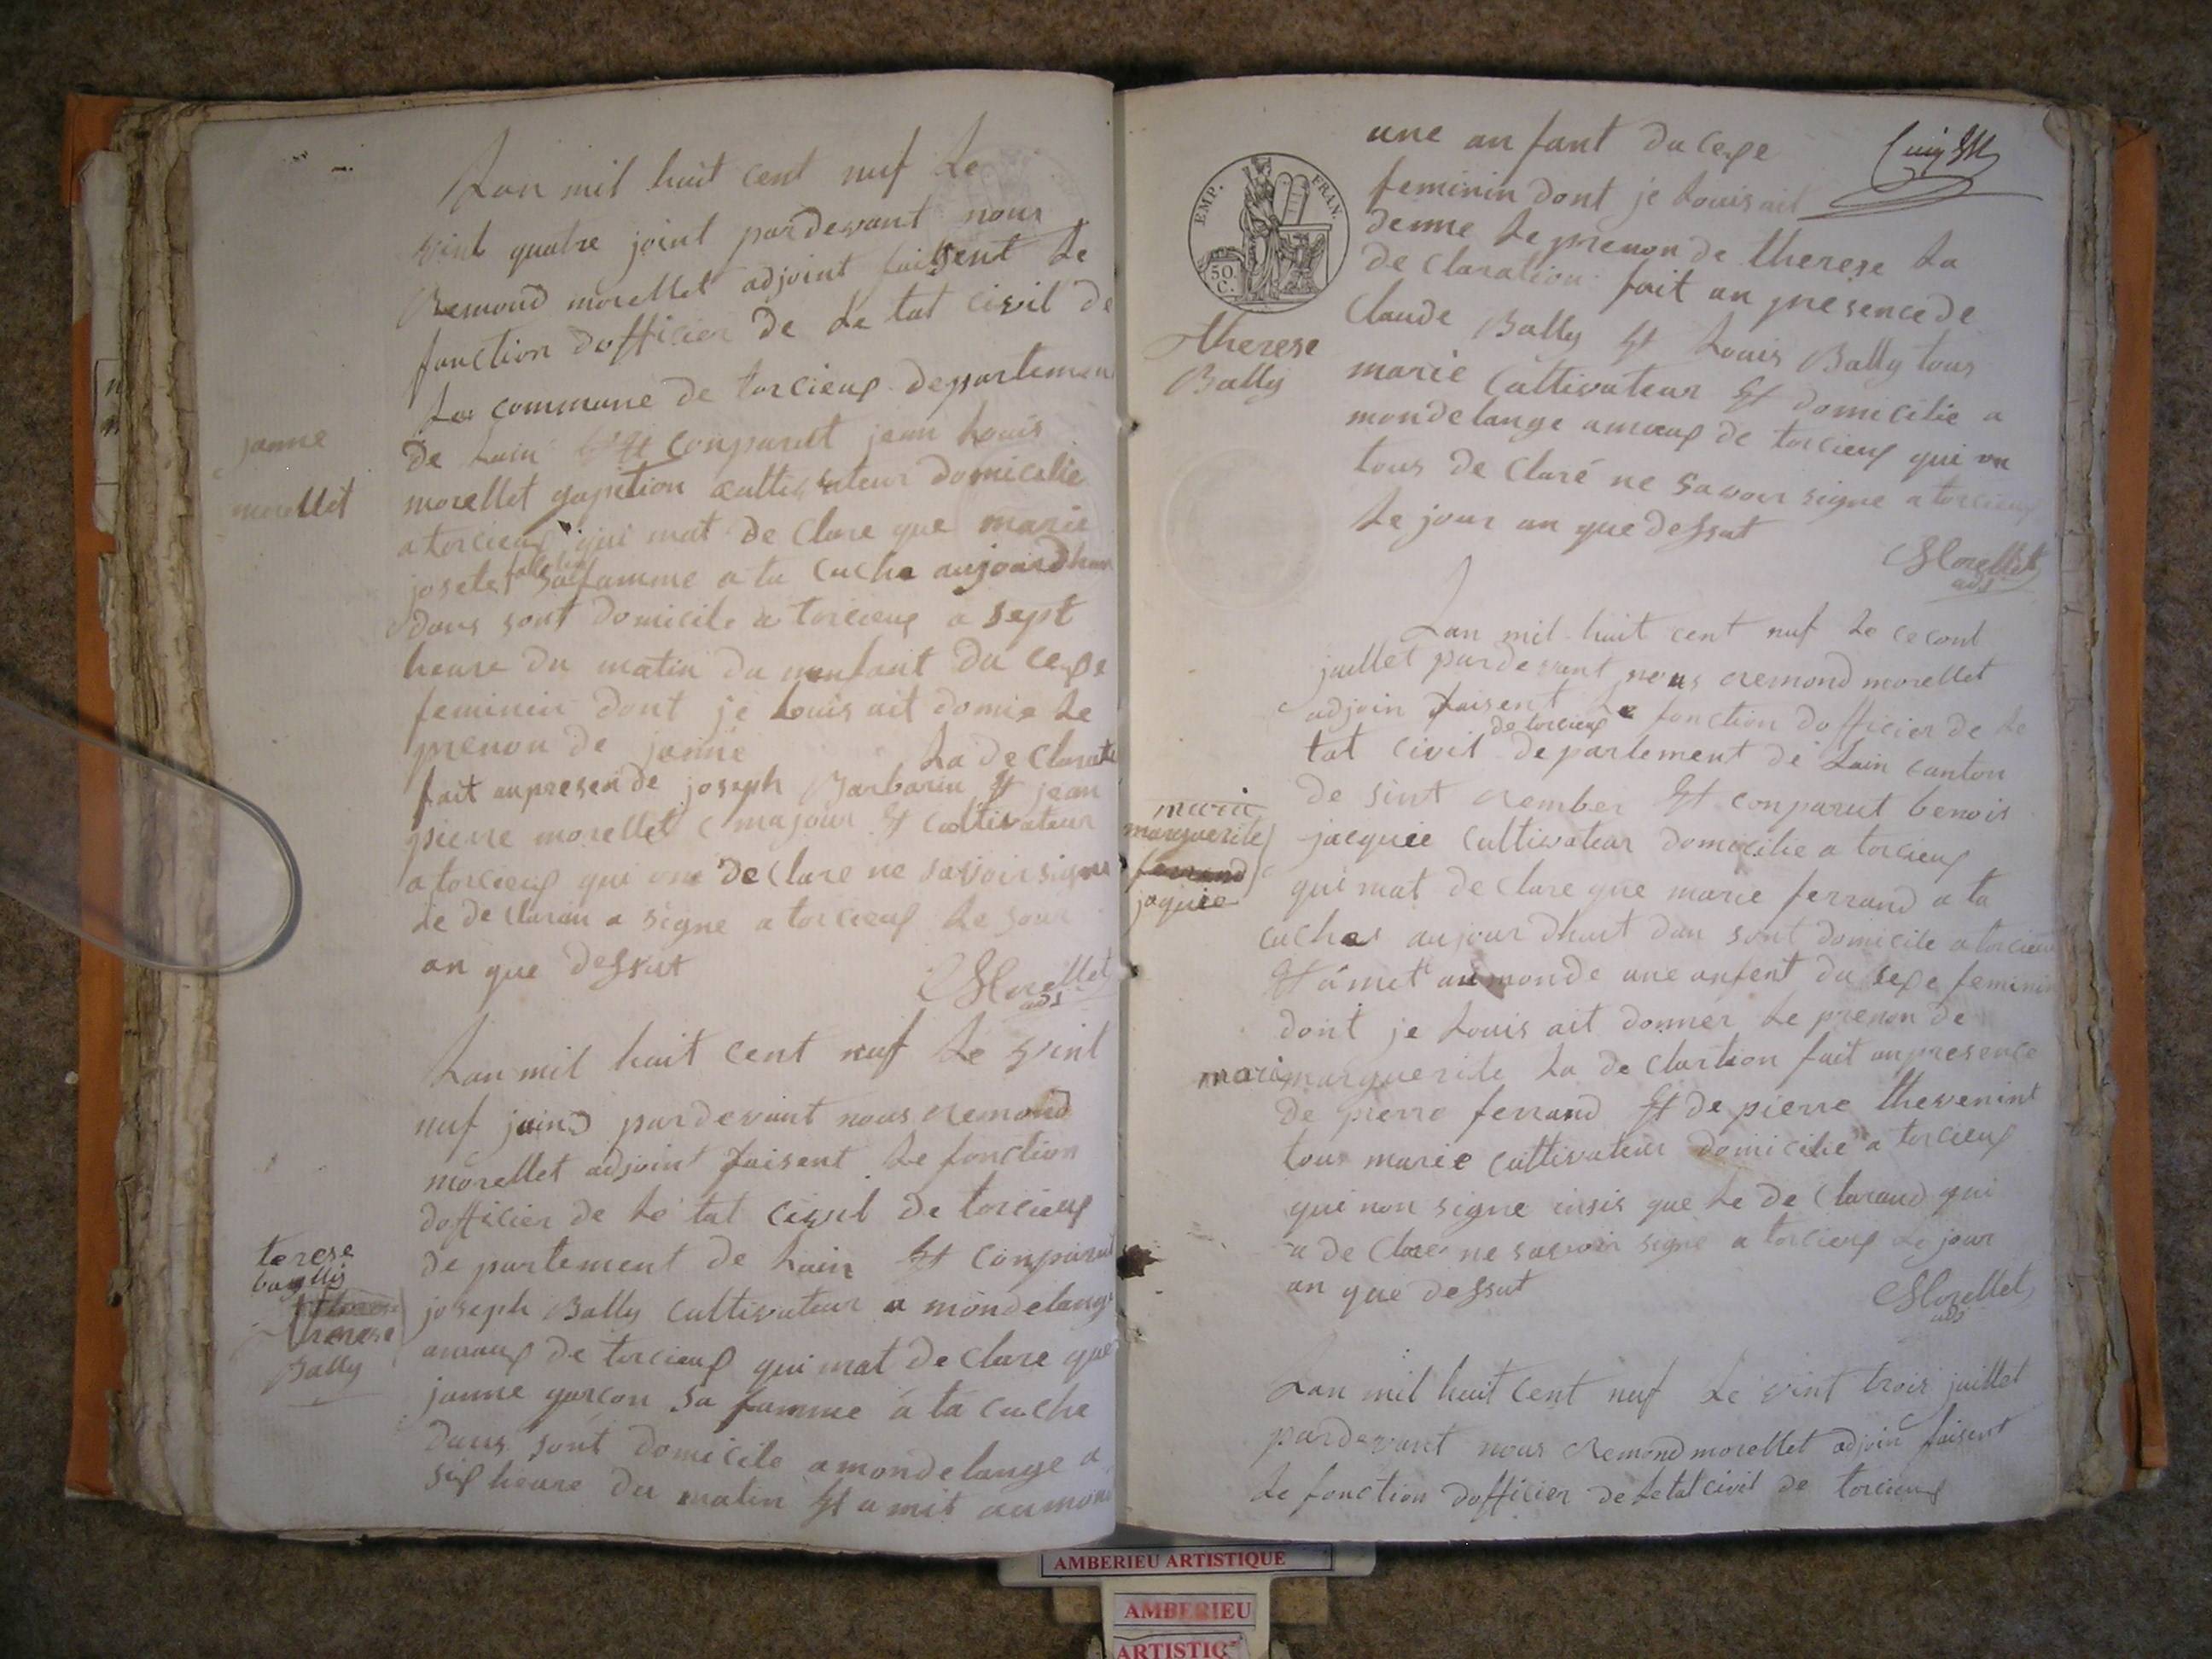 Lan mil huit cent nuf le
vint quatre joint pardevant nous
Remond morellet adjoint faissent le
fonction dofficier de le tat civil de
La commune de torcieux departemen
janne
de Lain Est conparut jean Louis
morellet
morellet cultivateur domicilie
a torcieux qui mat de clare que marie
josete sa famme a ta cucha aujourdhui
dans sont domicile a torcieux a sept
heure du matin du nenfant du cexse
feminin dont je Louis ait donne Le
prenon de janne La de clarati
fait anpresen de joseph Barbarin Et jean
pierre morellet majour Et cultivateur
a torcieux qui one de clare ne savoir signe
Le de claran a signe a torcieux Le jour
an que dessut
Morellet
adj
Lan mil huit cent nuf Le vint
nuf juin pardevant nous remond
morellet adjoint faisent Le fonction
dofficier de Le tat civil de torcieux
terese
de partement de Lain Et conparut
joseph Bally cultivateur a mondelange
therese
Bally
amaux de torcieux qui mat de clare que
janne garcon sa famme a ta cuche
dans sont domicile a mondelange a
six heure du matin Et a mis aumon
une anfant du cexe
feminin dont je Louis ait
EMP. FRAN.
50. C.
denne Le prenon de therese La
de claration fait an presence de
therese
Bally
Claude Bally Et Louis Bally tous
marie Cultivateur Et domicilie a
mondelange amaux de torcieux qui on
tous de claré ne savoir signe a torcieux
Le jour an que dessut
Morellet
adj
Lan mil huit cent nuf Le cecont
juillet pardevant nous remond morellet
adjoin faisent Le fonction dofficier de Le
de torcieux
tat civil departement de Lain canton
de sint rember Et conparut benois
maria
marguerite
ferrand
jaquie
jacquie Cultivateur domicilie a torcieux
qui mat de clare que marie ferrand a ta
cuches aujourdhuit dan sont domicile a torcieux
Et a met au monde une anfent du sexe feminin
dont je Louis ait donner Le prenon de
marie marguerite La de clartion fait anpresence
de pierre ferrand Et de pierre thevenint
tous marie cultivateur domicilie a torcieux
qui non signe insis que Le de clarand qui
a de clare ne savoir signe a torcieux Le jour
an que dessut
Morellet
adj
Lan mil huit cent nuf Le vint trois juillet
pardevant nous Remond morellet adjoin faisent
Le fonction dofficier de Letat civil de torcieux
AMBERIEU ARTISTIQUE
AMBERIEU
ARTISTIQ